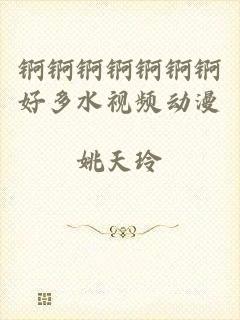 锕锕锕锕锕锕锕
好多水视频动漫
姚天玲